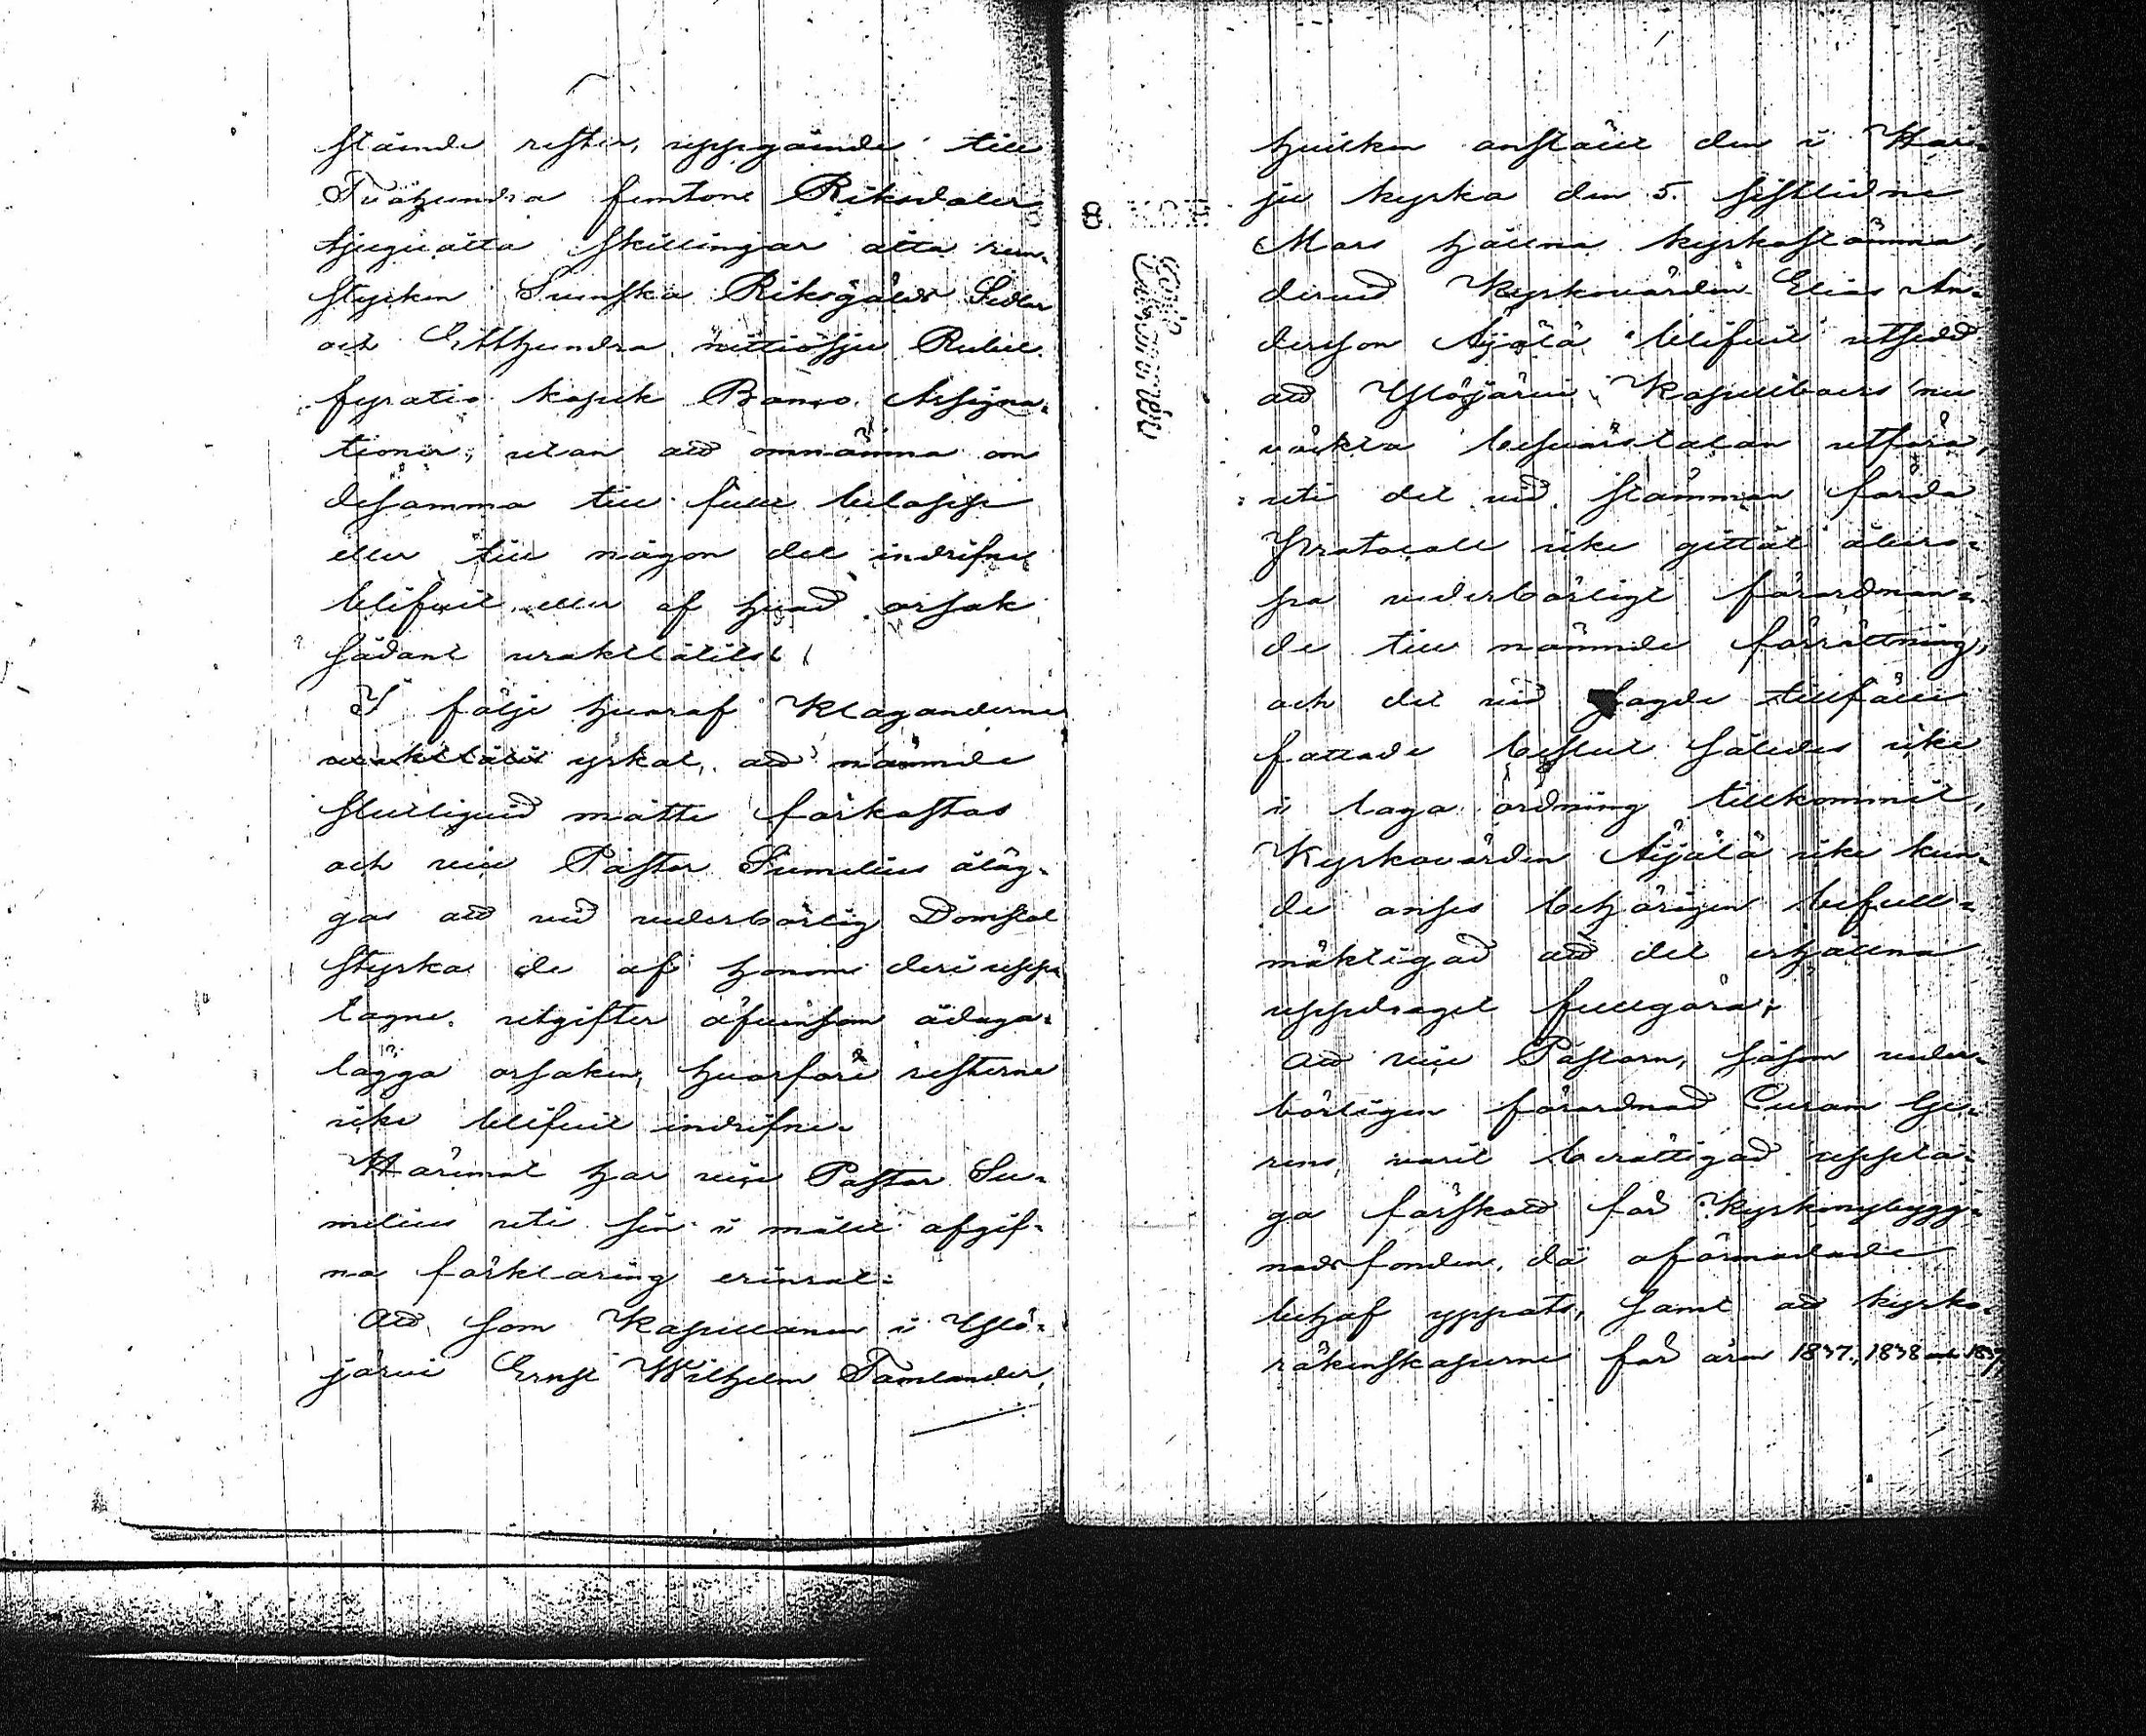 stående rester, uppgående till
Tvåhundra femtone Riksdaler
tjuguåtta skillingar åtta run-
stycken Svenska Riksgälds Sedlar
och Etthundra nittiosju Rubel
fyratio kopek Banco Assigna-
tioner, utan att omnämna om
desamma till fullt belopp
eller till någon del indrifne
blifvit eller af hvad orsak
sådant uraktlåtits.
I följe hvaraf Klaganderne
uraktlåtit yrkat, att nämnde
slutliqvid måtte förkastas
och vice Pastor Sumelius åläg-
gas att vid vederbörlig Domstol
styrka de af honom deri upp-
tagne utgifter äfvensom ådaga-
lägga orsaken, hvarföre resterne
icke blifvit indrifne.
Häremot har vice Pastor Su-
melius uti sin i målet afgif-
na förklaring erinrat:
Att som Kapellanen i Ylö-
järvi Ernst Wilhelm Tamlander,
hvilken anställt den i Har-
ju kyrka den 5. sistlidne
Mars hållna kyrkostämma,
dervid Kyrkovärden Elias An-
dersson Äijälä blifvit utsedd
att Ylöjärvi Kapellboers nu
väckta besvärstalan utföra,
uti det vid stämman förda
Protocoll icke gittat åbero-
pa vederbörligt förordnan-
de till nämnde förrättning,
och det vid sagde tillfälle
fattade beslut således icke
i laga ordning tillkommit,
Kyrkovärden Äijälä icke kun-
de anses behörigen befull-
mäktigad att det erhållna
uppdraget fullgöra;
Att vice Pastorn, såsom veder-
börligen förordnad Curam Ge-
rens, varit berättigad uppta-
ga förskott för Kyrkonybygg-
nadsfonden, då oförmodade
behof yppats, samt att kyrko-
räkenskaperne för åren 1837, 1838 och 1839